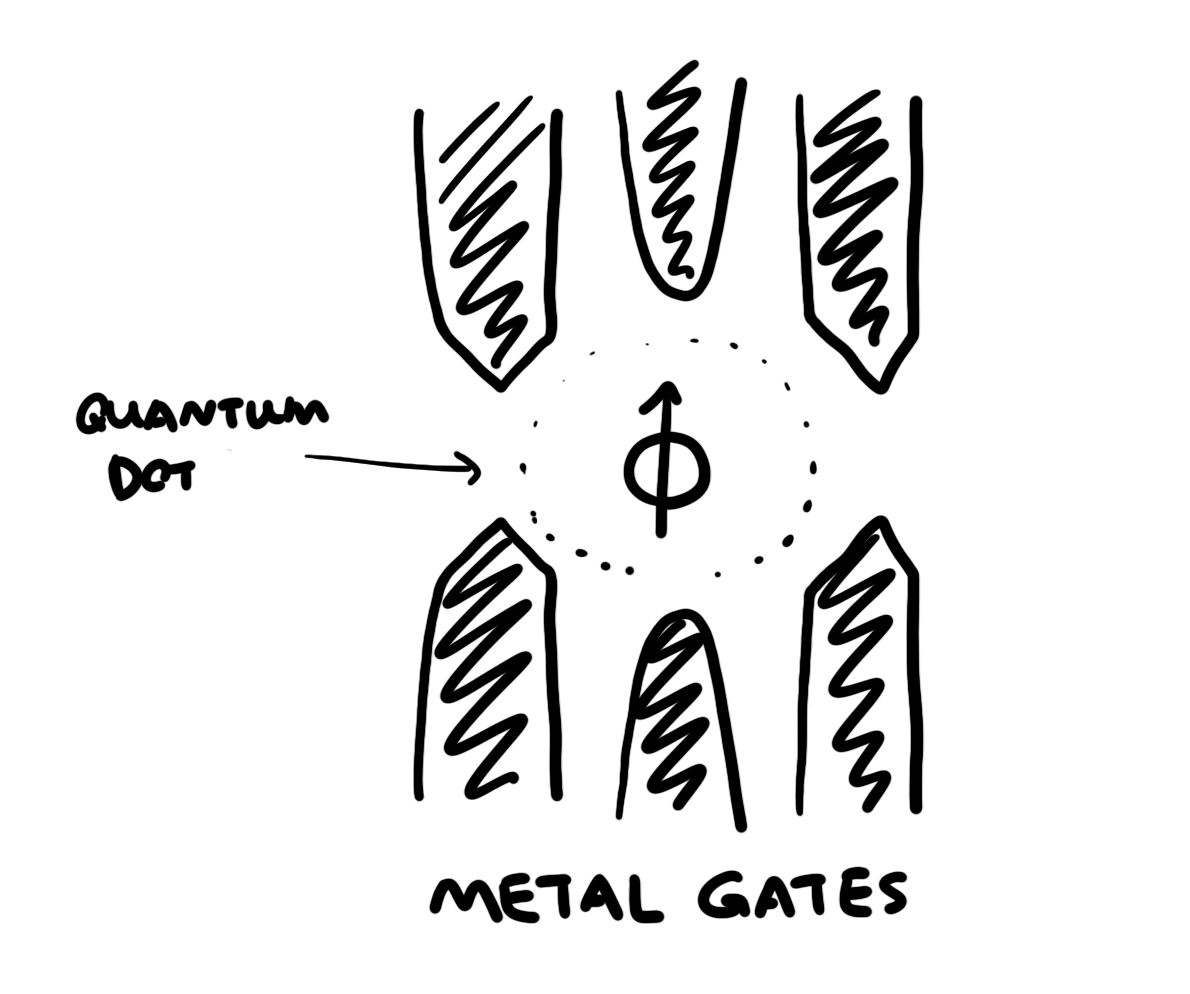 QUANTUM
DOT
METAL GATES